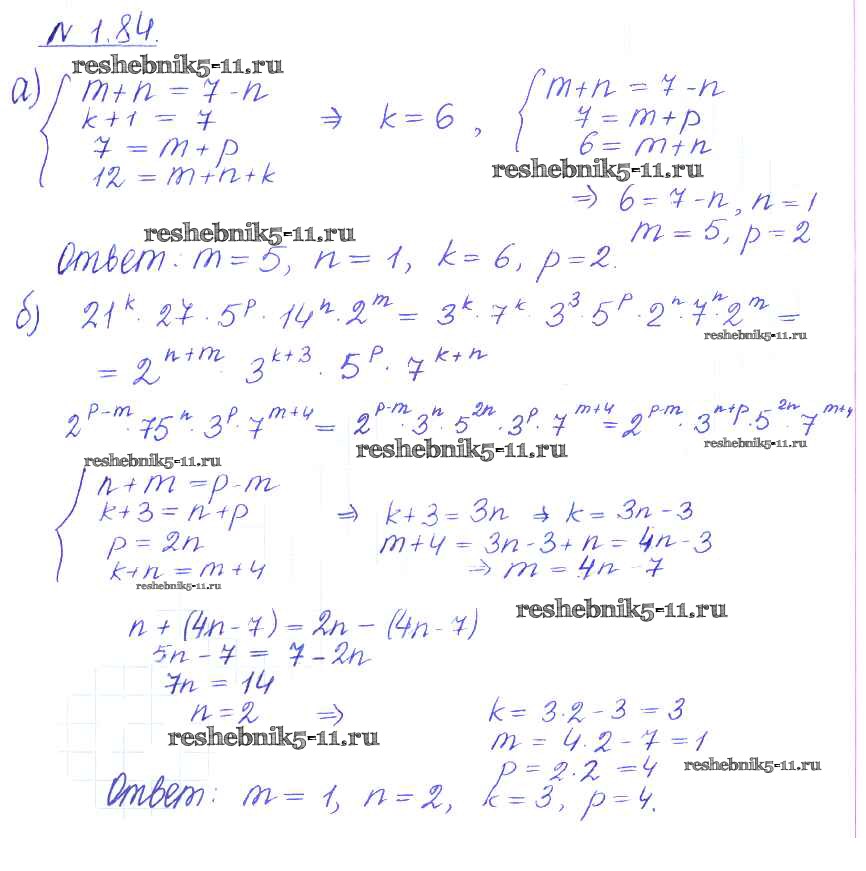 N 1.84.
reshebnik5-11.ru
а) { m+n = 7-n
k+1 = 7
7 = m+p
12 = m+n+k
⇒ k = 6 ,
{ m+n = 7-n
7 = m+p
6 = m+n
reshebnik5-11.ru
⇒ 6 = 7-n, n = 1
m = 5, p = 2
reshebnik5-11.ru
Ответ: m = 5, n = 1, k = 6, p = 2.
б) 21^k · 27 · 5^p · 14^n · 2^m = 3^k · 7^k · 3^3 · 5^p · 2^n · 7^n · 2^m =
reshebnik5-11.ru
= 2^{n+m} · 3^{k+3} · 5^p · 7^{k+n}
2^{p-m} · 75^n · 3^p · 7^{m+4} = 2^{p-m} · 3^n · 5^{2n} · 3^p · 7^{m+4} = 2^{p-m} · 3^{n+p} · 5^{2n} · 7^{m+4}
reshebnik5-11.ru reshebnik5-11.ru reshebnik5-11.ru
{ n+m = p-m
k+3 = n+p
p = 2n
k+n = m+4
reshebnik5-11.ru
⇒ k+3 = 3n ⇒ k = 3n-3
m+4 = 3n-3+n = 4n-3
⇒ m = 4n-7
reshebnik5-11.ru
n + (4n-7) = 2n - (4n-7)
5n-7 = 7-2n
7n = 14
n = 2 ⇒
reshebnik5-11.ru
k = 3·2-3 = 3
m = 4·2-7 = 1
p = 2·2 = 4
reshebnik5-11.ru
Ответ: m = 1, n = 2, k = 3, p = 4.